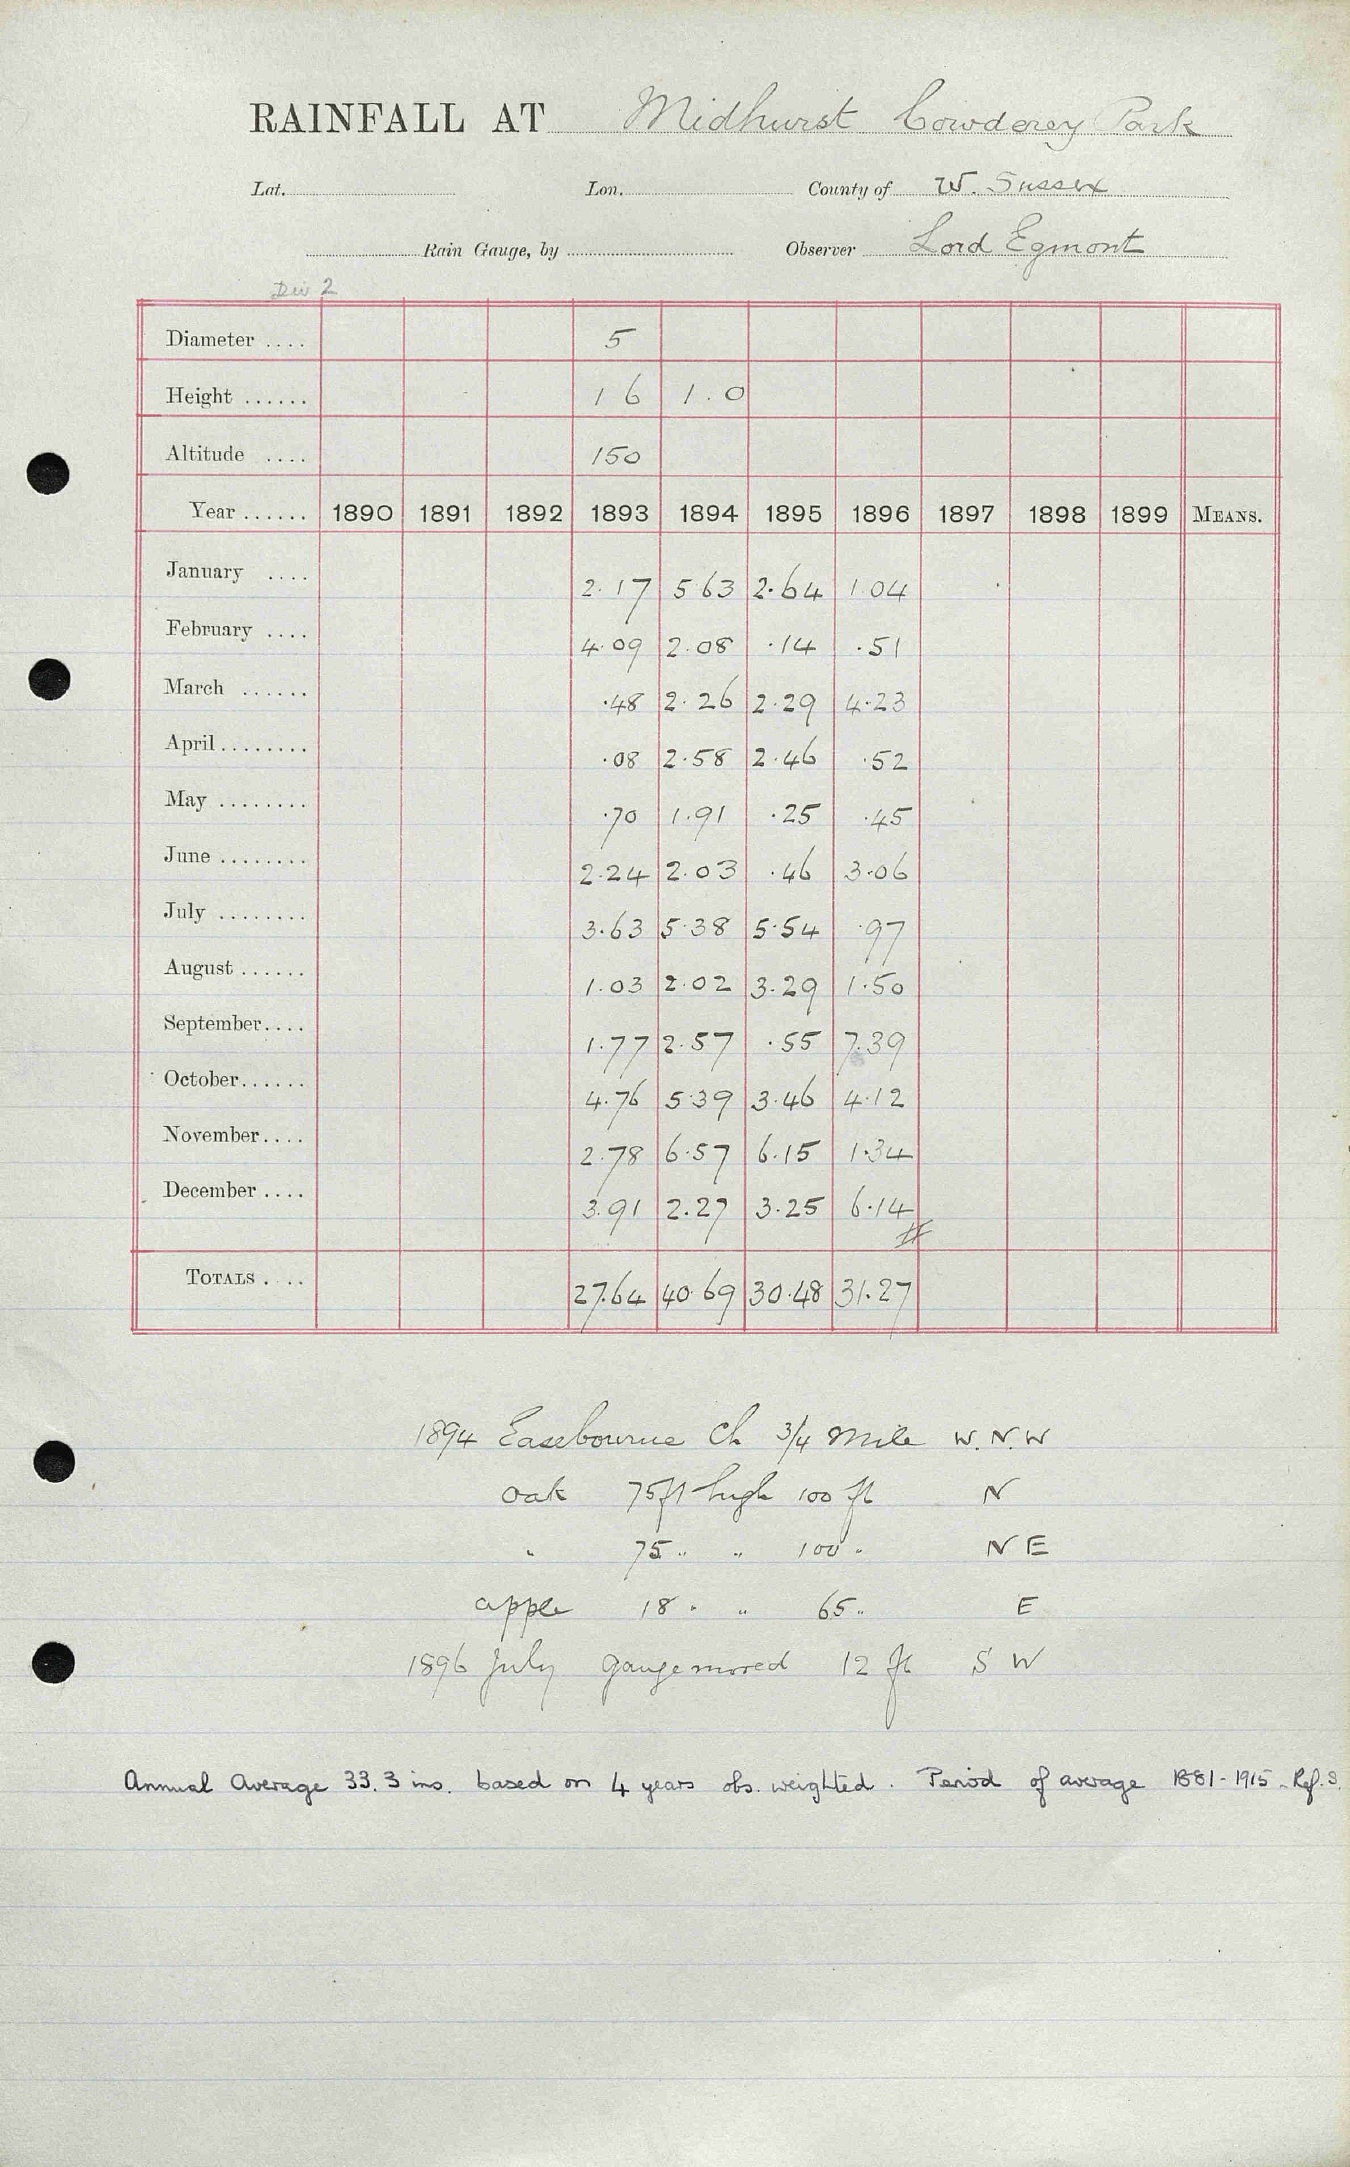 RAINFALL AT Midhurst Cowderey Park
Lat. Lon. County of W. Sussex
Rain Gauge, by Observer Lord Egmont
Div 2
Diameter .... 5
Height ...... 1 6 1.0
Altitude .... 150
Year ...... 1890 1891 1892 1893 1894 1895 1896 1897 1898 1899 MEANS.
January .... 2.17 5.63 2.64 1.04
February .... 4.09 2.08 .14 .51
March ...... .48 2.26 2.29 4.23
April ........ .08 2.58 2.46 .52
May ........ .70 1.91 .25 .45
June ........ 2.24 2.03 .46 3.06
July ........ 3.63 5.38 5.54 .97
August ...... 1.03 2.02 3.29 1.50
September .... 1.77 2.57 .55 7.39
October ...... 4.76 5.39 3.46 4.12
November .... 2.78 6.57 6.15 1.34
December .... 3.91 2.27 3.25 6.14
#
TOTALS .... 27.64 40.69 30.48 31.27
1894 Easebourne Ch 3/4 Mile W.N.W
oak 75ft high 100 ft N
" 75 " " 100 " N E
apple 18 " " 65 " E
1896 July gauge moved 12 ft S W
Annual Average 33.3 ins. based on 4 years obs. weighted. Period of average 1881-1915. Ref. S.